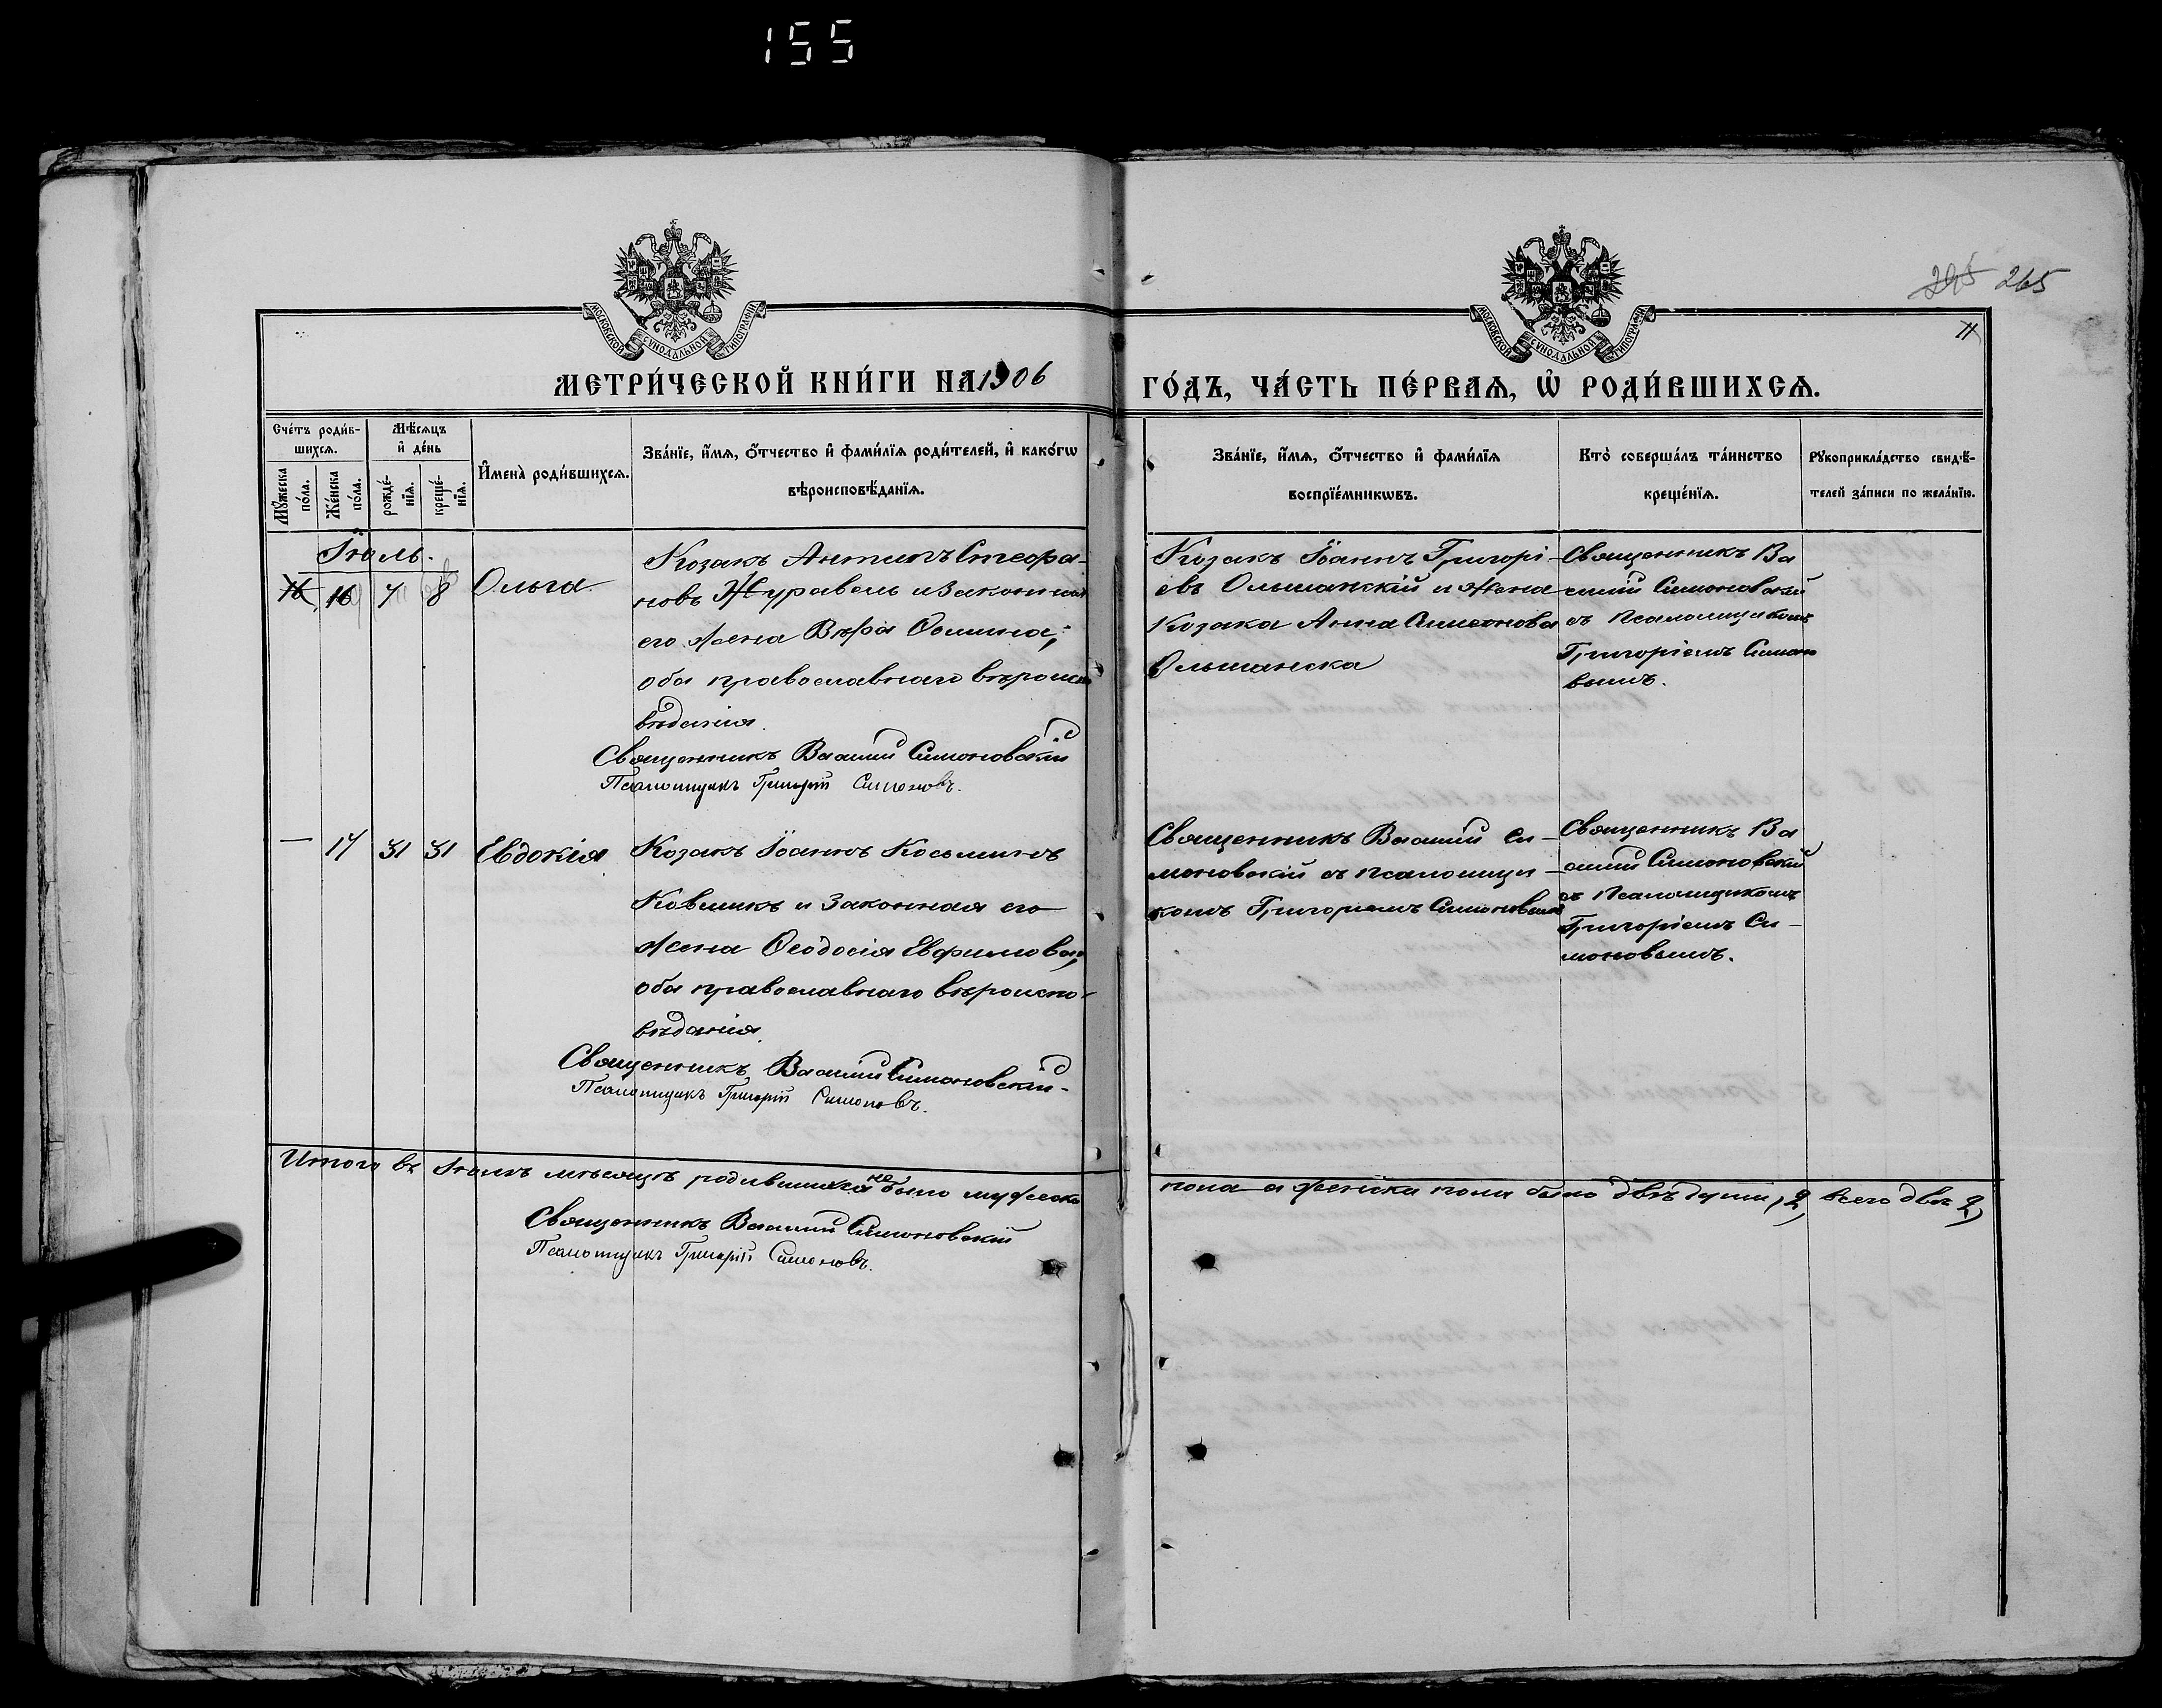 155
265
265
11
МОСКОВСКОЙ СѴНОДАЛЬНОЙ ТИПОГРАФІИ
МОСКОВСКОЙ СѴНОДАЛЬНОЙ ТИПОГРАФІИ
МЕТРИ́ЧЕСКОЙ КНИ́ГИ НА 1906
ГО́ДЪ, ЧА́СТЬ ПЕ́РВАѦ, Ѡ҆ РОДИ́ВШИХСѦ.
Сче́тъ роди́в-
шихсѧ.
Мꙋ́жеска по́ла.
Же́нска по́ла.
Мѣ́сѧцъ
и҆ де́нь
рожде́-
нїѧ.
креще́-
нїѧ.
И҆мена̀ роди́вшихсѧ.
Зва́нїе, и҆́мѧ, ѻ҆́тчество и҆ фами́лїѧ роди́телей, и҆ како́гѡ
вѣроисповѣ́данїѧ.
Зва́нїе, и҆́мѧ, ѻ҆́тчество и҆ фами́лїѧ
воспрїе́мникѡвъ.
Кто̀ соверша́лъ та́инство
креще́нїѧ.
Рꙋкоприкла́дство свидѣ́-
телей за́писи по жела́нїю.
Іюль.
16 16 7 8 Ольга
Козакъ Антипъ Стефа-
новъ Журавель и законная
его жена Вѣра Ѳомина;
оба православнаго вѣроиспо
вѣданія.
Священникъ Василій Симоновскій
Псаломщикъ Григорій Симоновъ.
Козакъ Іоаннъ Григорі-
евъ Ольшанскій и жена
Козака Анна Симеонова
Ольшанска
Священникъ Ва
силій Симоновскій
съ Псаломщикомъ
Григоріемъ Симоно
вымъ.
— 17 31 31 Евдокія
Козакъ Іоаннъ Косьминъ
Ковшикъ и законная его
жена Ѳеодосія Евфимова,
оба православнаго вѣроиспо-
вѣданія.
Священникъ Василій Симоновскій
Псаломщикъ Григорій Симоновъ.
Священникъ Василій Си-
моновскій съ псаломщи-
комъ Григоріемъ Симоновымъ
Священникъ Ва
силій Симоновскій
съ Псаломщикомъ
Григоріемъ Си-
моновымъ.
Итого въ Іюлѣ мѣсяцѣ родившихся не было мужеска
пола а женска пола было двѣ души, 2, всего двѣ 2,
Священникъ Василій Симоновскій
Псаломщикъ Григорій Симоновъ.